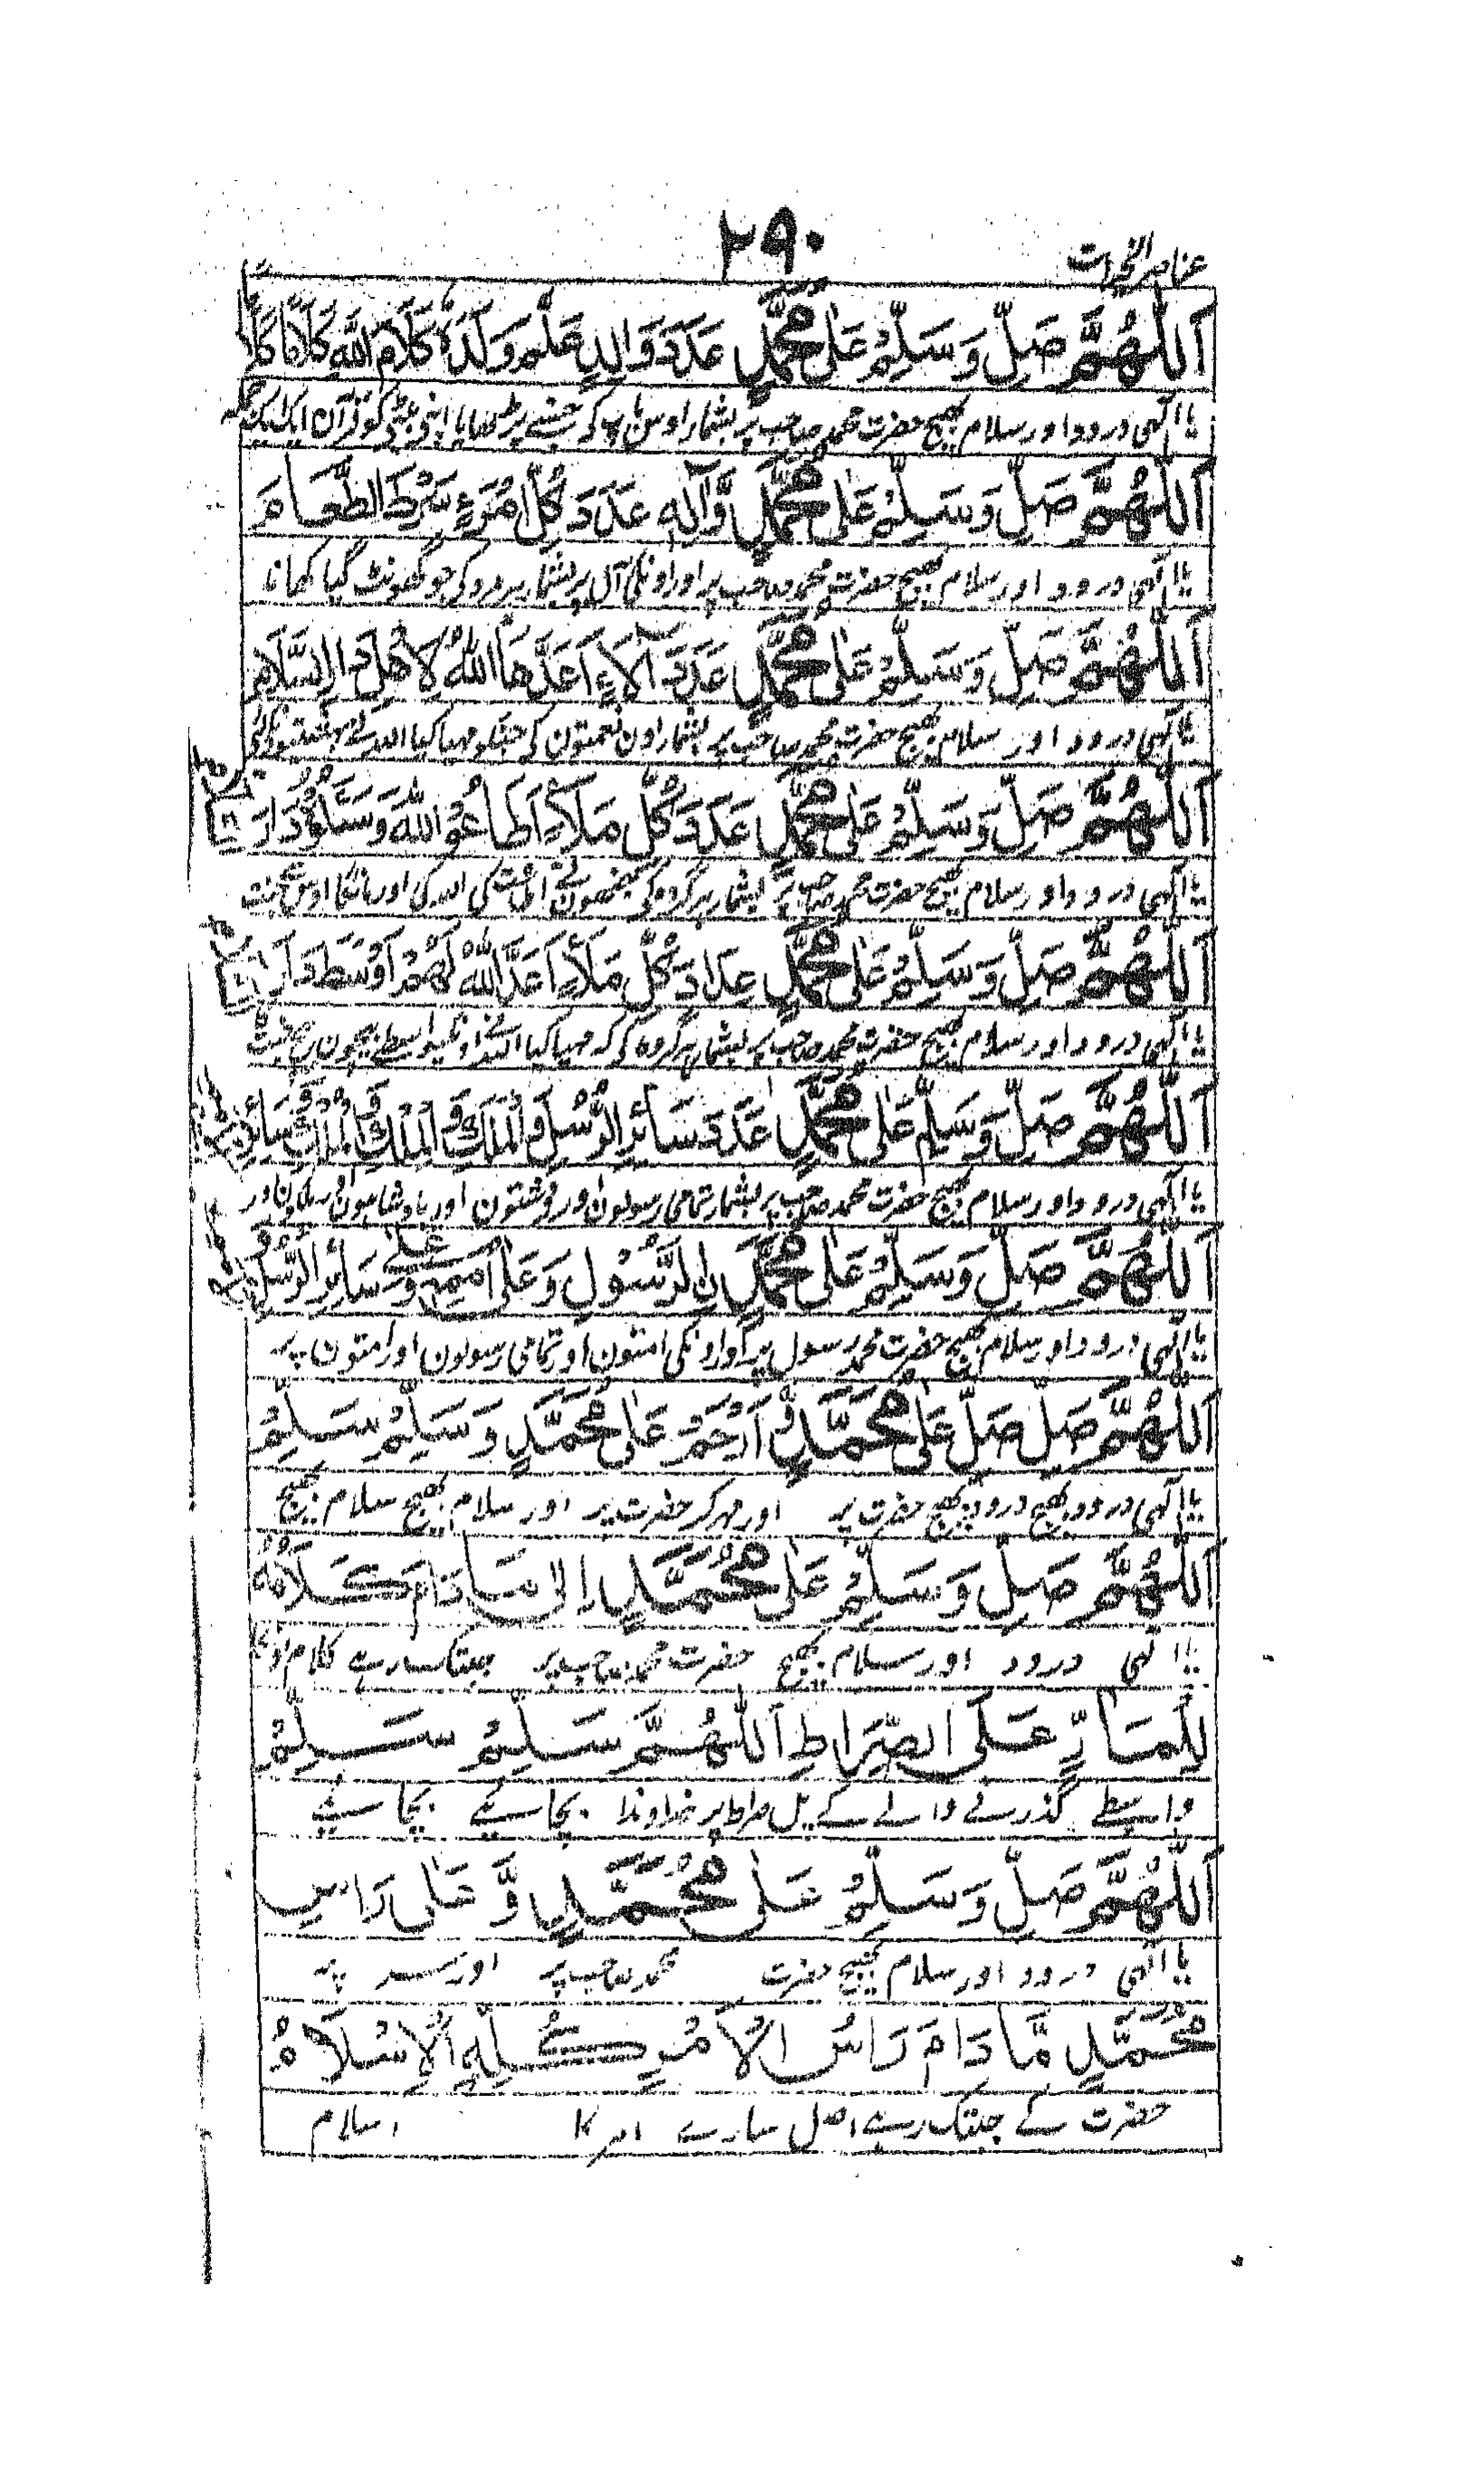 ۲۹۰
عناصر الخیرات
اَللّٰهُمَّ صَلِّ وَسَلِّمْ عَلٰى مُحَمَّدٍ عَدَدَ وَالِدٍ عَلَّمَ وَلَدَهٗ كَلَامَ اللّٰهِ كَلَامًا كَلَامًا
یا الٰہی درود اور سلام بھیج حضرت محمد صاحب پر بشمار اوس باپ کے جسنے پڑھایا اپنی بیٹی کو قرآن ایک ایک کلمہ
اَللّٰهُمَّ صَلِّ وَسَلِّمْ عَلٰى مُحَمَّدٍ وَّاٰلِهٖ عَدَدَ كُلِّ امْرَءٍ سَرَطَ الطَّعَامَ
یا الٰہی درود اور سلام بھیج حضرت محمد صاحب پر اور اونکی آل پر بشمار ہر مرد کی جو گھونٹ گیا کھانا
اَللّٰهُمَّ صَلِّ وَسَلِّمْ عَلٰى مُحَمَّدٍ عَدَدَ اٰلَاءٍ اَعَدَّهَا اللّٰهُ لِاَهْلِ دَارِ السَّلَامِ
یا الٰہی درود اور سلام بھیج حضرت محمد صاحب پر بشمار اون نعمتون کی جنکو مہیا کیا اللہ نے بہشتیونکے لئے
اَللّٰهُمَّ صَلِّ وَسَلِّمْ عَلٰى مُحَمَّدٍ عَدَدَ كُلِّ مَلَاءٍ اَطَاعُوا اللّٰهَ وَسَئَلُوْهُ دَارَ
یا الٰہی درود اور سلام بھیج حضرت محمد صاحب پر بشمار ہر گروہ کے جنھون نے اطاعت کی اللہ کی اور مانگا اوس سے جنت
اَللّٰهُمَّ صَلِّ وَسَلِّمْ عَلٰى مُحَمَّدٍ عَدَدَ كُلِّ مَلَاءٍ اَعَدَّ اللّٰهُ لَهُمْ اَوْسَطَ دَارِ
یا الٰہی درود اور سلام بھیج حضرت محمد صاحب پر بشمار ہر گروہ کے کہ مہیا کیا اللہ نے اونکیواسطے بیچون بیچ جنت
اَللّٰهُمَّ صَلِّ وَسَلِّمْ عَلٰى مُحَمَّدٍ عَدَدَ سَائِرِ الرُّسُلِ وَالْمَلَكِ وَالْمَلِكِ وَالْمُلْكِ وَسَائِرِ
یا الٰہی درود اور سلام بھیج حضرت محمد صاحب پر بشمار تمامی رسولون اور فرشتون اور بادشاہون اور ملکون اور
اَللّٰهُمَّ صَلِّ وَسَلِّمْ عَلٰى مُحَمَّدِنِ الرَّسُوْلِ وَعَلٰى اُمَمِهٖ وَعَلٰى سَائِرِ الرُّسُلِ
یا الٰہی درود اور سلام بھیج حضرت محمد رسول پر اور اونکی امتون اور تمامی رسولون اور امتون پر
اَللّٰهُمَّ صَلِّ صَلِّ عَلٰى مُحَمَّدٍ وَّارْحَمْ عَلٰى مُحَمَّدٍ وَسَلِّمْ سَلِّمْ
یا الٰہی درود بھیج درود بھیج حضرت پر اور مہر کر حضرت پر اور سلام بھیج سلام بھیج
اَللّٰهُمَّ صَلِّ وَسَلِّمْ عَلٰى مُحَمَّدٍ اِلٰى مَا دَامَ كَلَامُهٗ
یا الٰہی درود اور سلام بھیج حضرت محمد صاحب پر جبتک رہے کلام اونکا
لِلْمَارِّ عَلَى الصِّرَاطِ اَللّٰهُمَّ سَلِّمْ سَلِّمْ
واسطے گذرنے والے کے پل صراط پر خداوندا بچائے بچائے
اَللّٰهُمَّ صَلِّ وَسَلِّمْ عَلٰى مُحَمَّدٍ وَّعَلٰى رَاْسِ
یا الٰہی درود اور سلام بھیج حضرت محمد صاحب پر اور سر پر
مُحَمَّدٍ مَّا دَامَ رَاْسُ الْاَمْرِ كُلِّهِ الْاِسْلَامُ
حضرت کے جبتک رہے اصل سارے امر کا اسلام